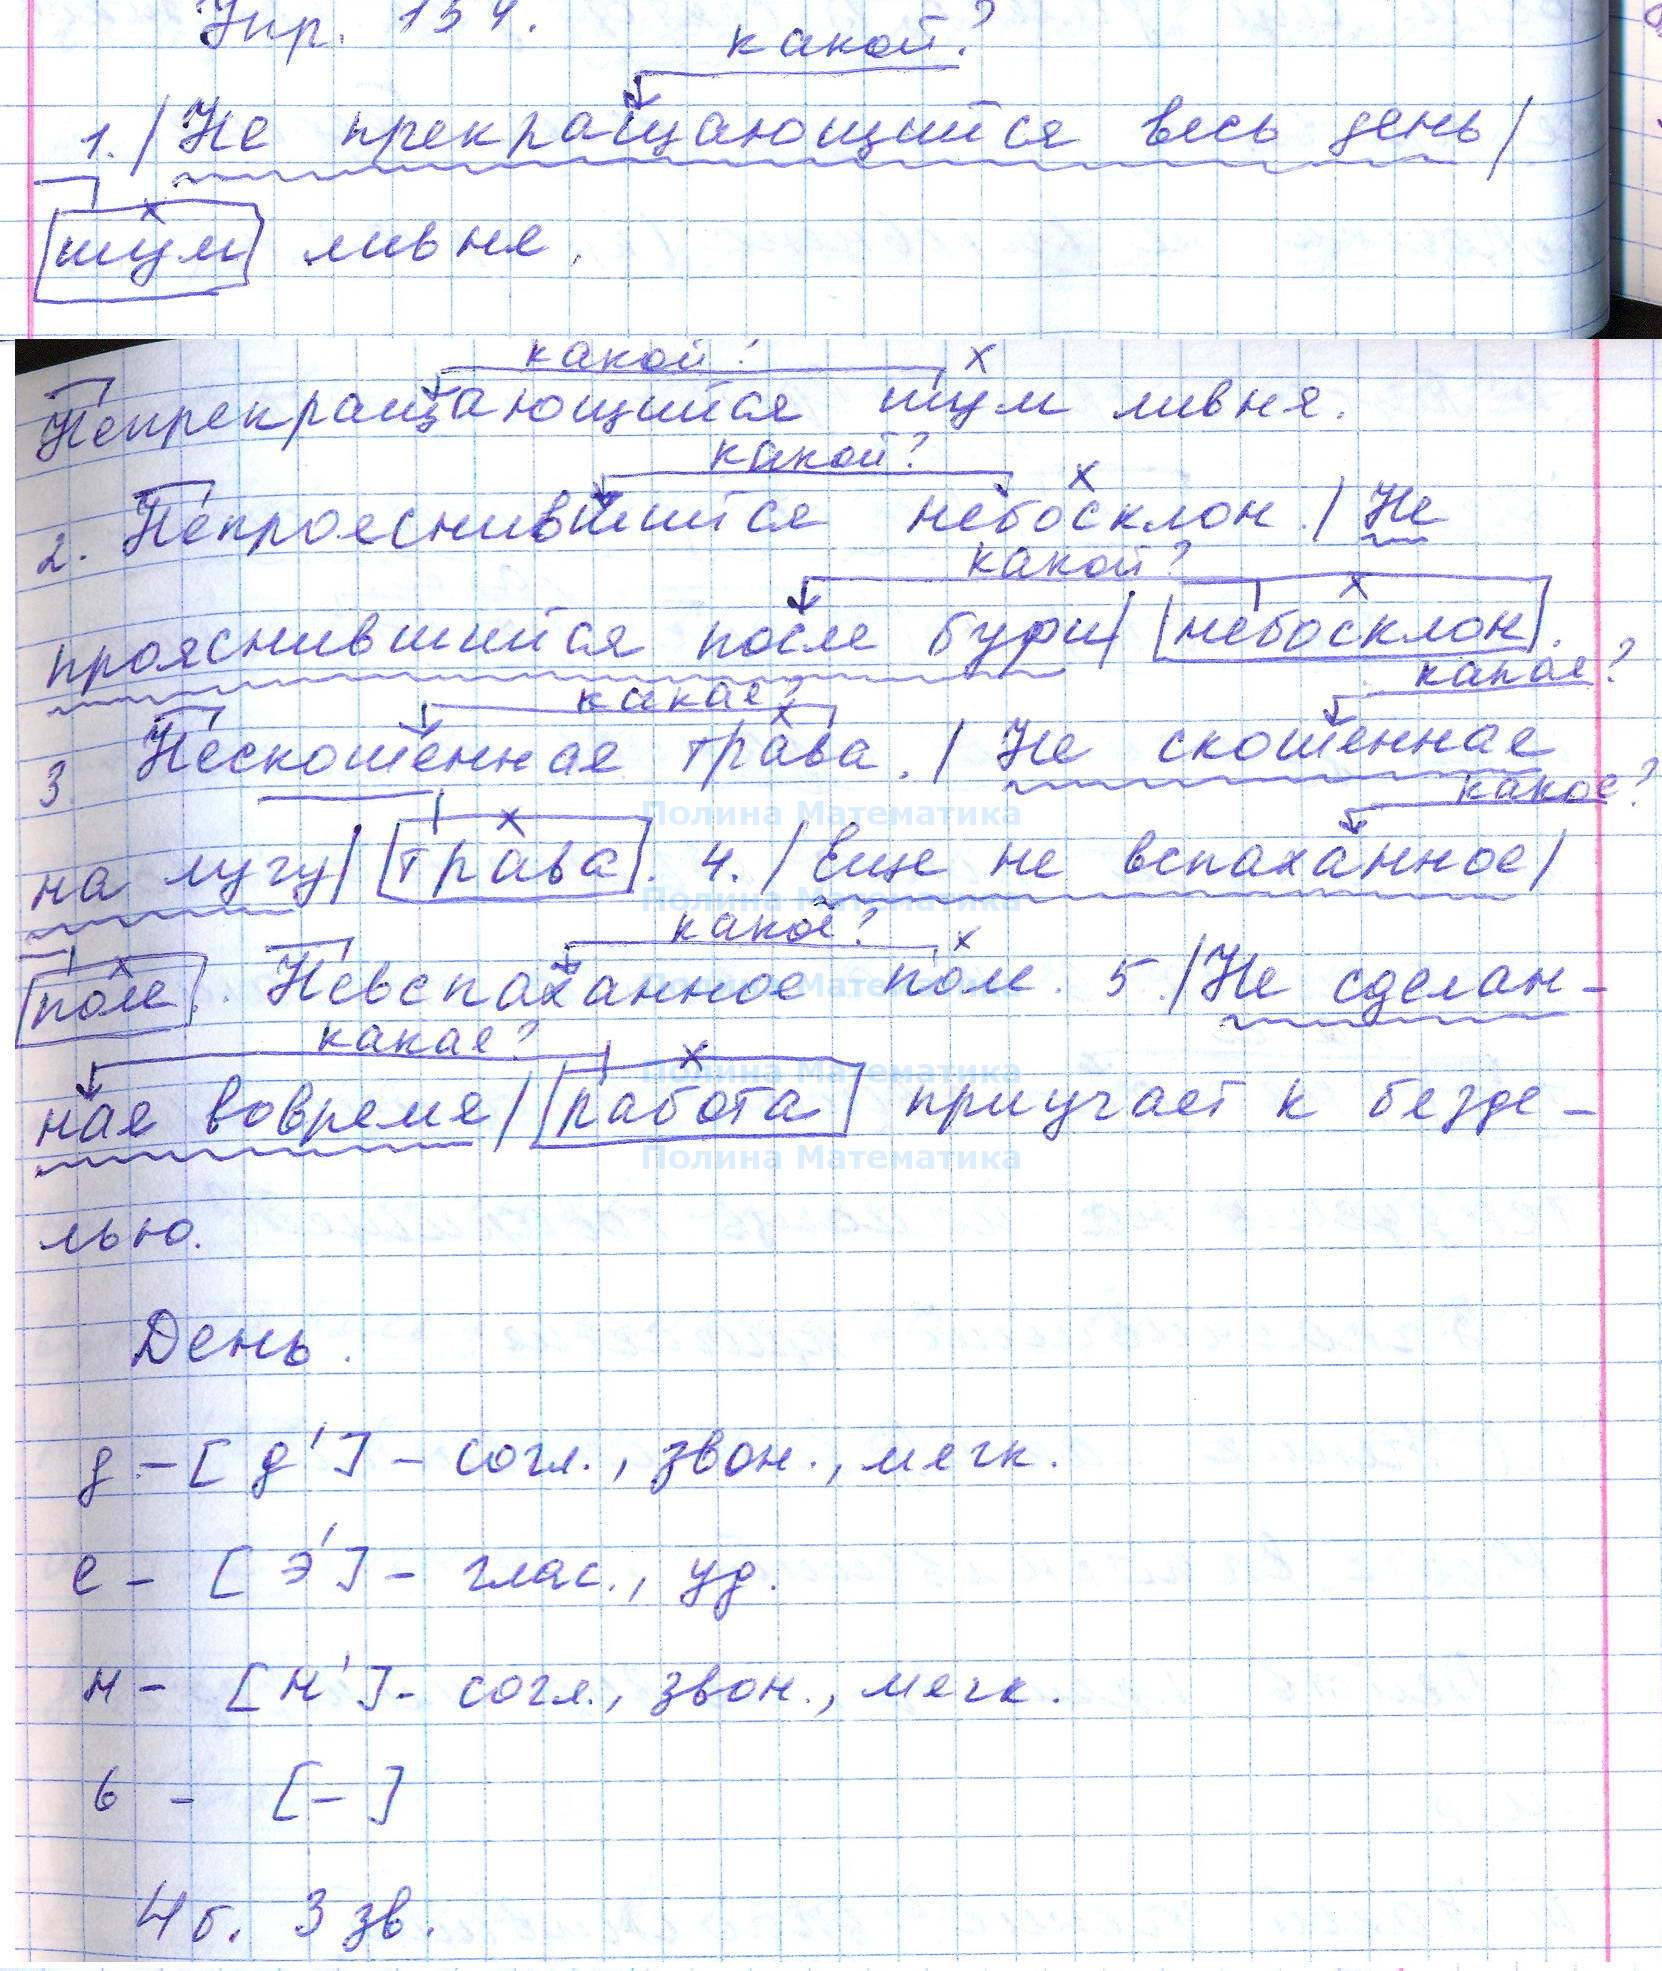 Упр. 154.
какой?
1. | Не прекращающийся весь день |
|шум| ливня.
какой?
Непрекращающийся шум ливня.
какой?
2. Непрояснившийся небосклон. | Не
какой?
прояснившийся после бури | |небосклон|.
какая? какая?
3 Нескошенная трава. | Не скошенная
какое?
Полина Математика
на лугу | |трава|. 4. | Еще не вспаханное |
Полина Математика
какое?
|поле|. Невспаханное поле. 5. | Не сделан-
Полина Математика
какая?
Полина Математика
ная вовремя | |работа| приучает к безде-
Полина Математика
лью.
День.
д - [д'] - согл., звон., мягк.
е - [э'] - глас., уд.
н - [н'] - согл., звон., мягк.
ь - [-]
4 б. 3 зв.